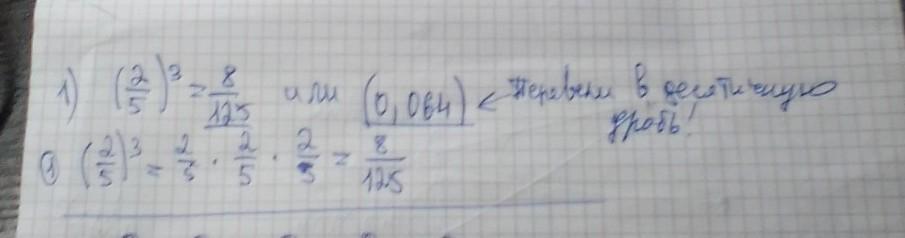 1) (2/5)^3 = 8/125 или (0,064) ← Перевели в десятичную
дробь!
(2/5)^3 = 2/5 · 2/5 · 2/5 = 8/125